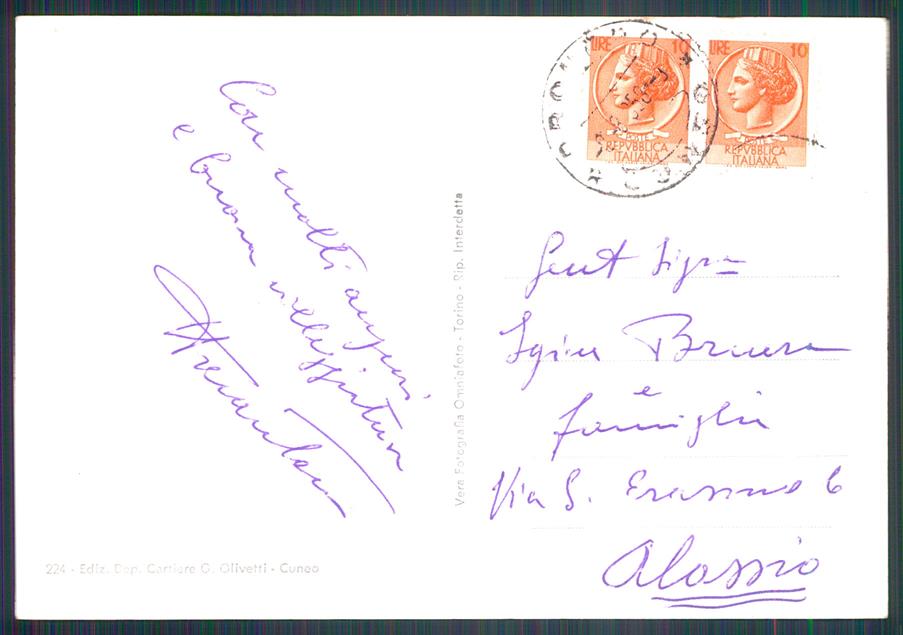 LIRE 10
POSTE
REPVBBLICA
ITALIANA
LIRE 10
POSTE
REPVBBLICA
ITALIANA
Con molti auguri
e buona villeggiatura
Vera Fotografia Omniafoto - Torino - Rip. Interdetta
Gent Sigra
Bruera
e
famiglia
Via S. Erasmo 6
Alassio
224 - Ediz. Dep. Cartiere G. Olivetti - Cuneo